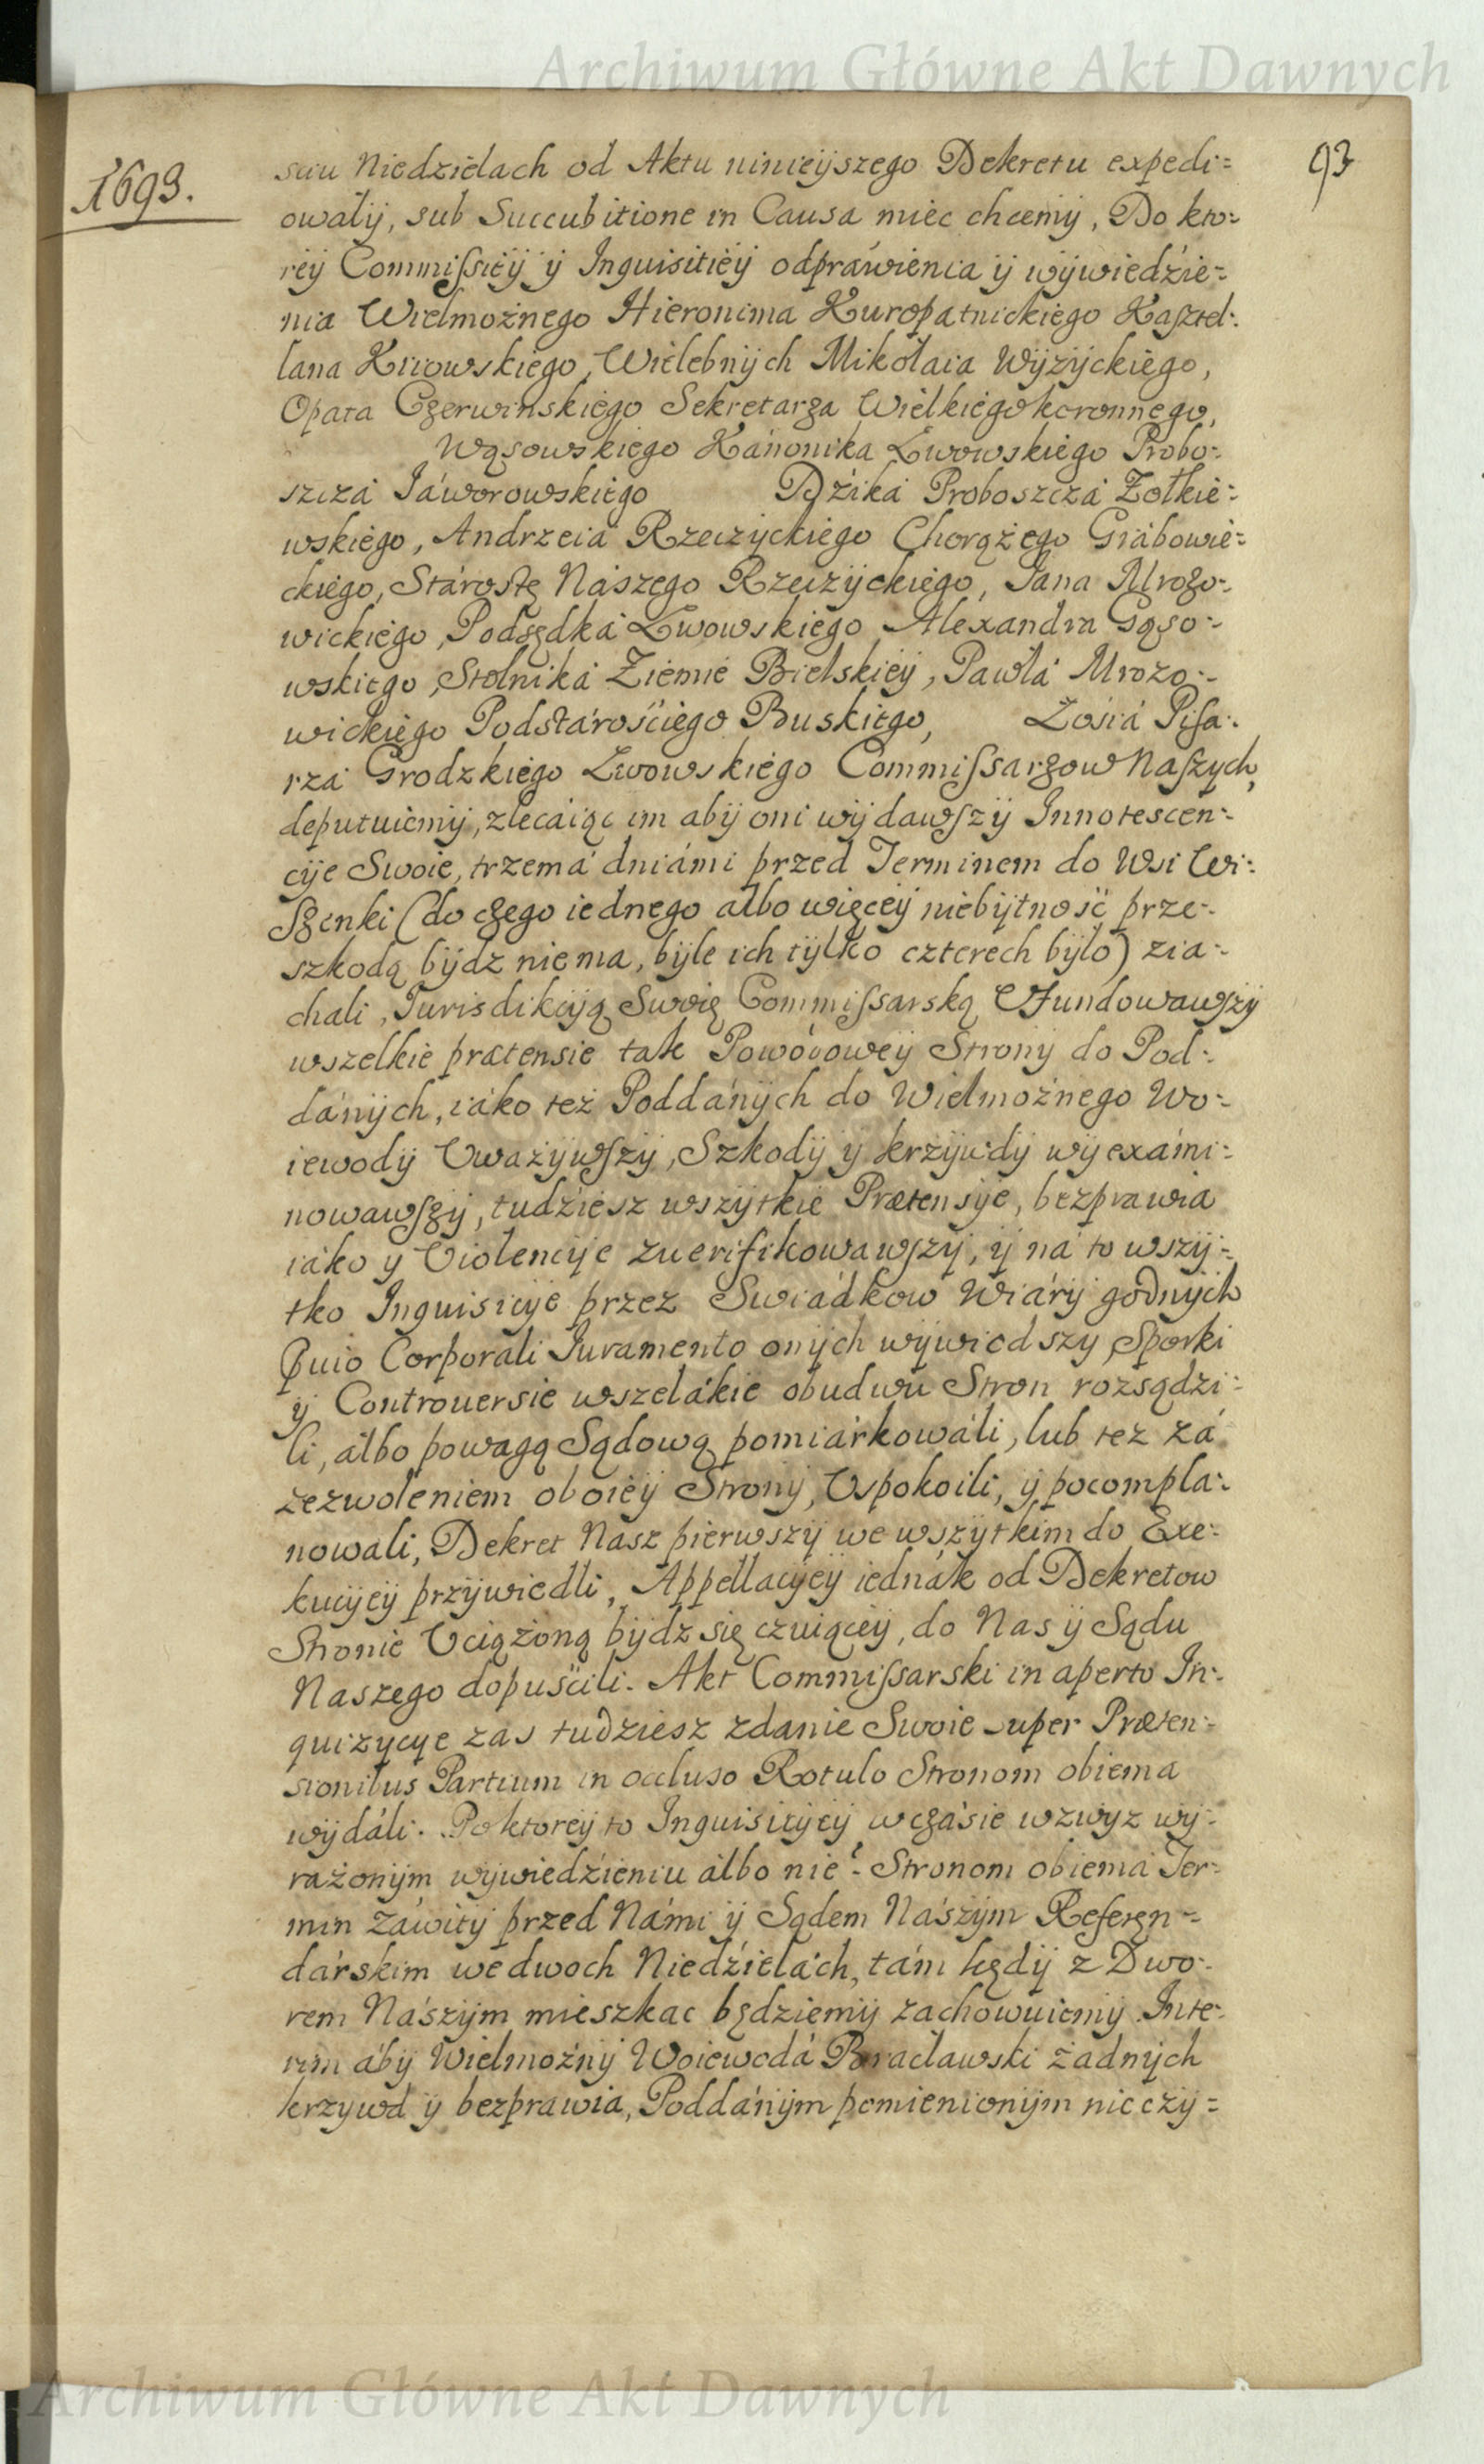 Archiwum Główne Akt Dawnych
1693.
93
sciu Niedzielach od Aktu ninieyszego Dekretu expedi=
owały, sub Succubitione in Causa miec chcemy, Do kto=
rey Commissiey y Inquisitiey odpráwienia y wywiedzie=
nia Wielmożnego Hieronima Kuropatnickiego Kasztel=
lana Kiiowskiego, Wielebnych Mikołaia Wyżyckiego,
Opata Czerwinskiego Sekretarza Wielkiego koronnego,
Wąsowskiego Kánonika Lwowskiego Probo=
szcza Jáworowskiego Dzika Proboszcza Zołkie=
wskiego, Andrzeia Rzeczyckiego Chorążego Grabowie=
ckiego, Stárostę Nászego Rzeczyckiego, Jana Mrozo=
wickiego, Podsędka Lwowskiego Alexandra Gąso=
wskiego, Stolnika Ziemie Bielskiey, Pawła Mrozo=
wickiego Podstárościego Buskiego, Zosia Pisa=
rza Grodzkiego Lwowskiego Commissarzow Naszych,
deputuiemy, zlecaiąc im aby oni wydawszy Innotescen=
cye Swoie, trzemá dniámi przed Terminem do Wsi Wi=
szenki (do czego iednego albo więcey niebytność prze=
szkodą bydz niema, byle ich tylko czterech było) zia=
chali, Jurisdikcyą Swoię Commissarską Ufundowawszy
wszelkie prætensie tak Powodowey Strony do Pod=
dánych, iáko też Poddánych do Wielmożnego Wo=
iewody Uważywszy, Szkody y krzywdy wyexámi=
nowawszy, tudziesz wszytkie Prætensye, bezprawia
iáko y Violencye zuerifikowawszy, y ná to wszy=
tko Inquisicye przez Swiádkow Wiáry godnych
Quio Corporali Juramento onych wywiodszy, Sporki
y Controuersie wszelákie obudwu Stron rozsądzi=
li, álbo powagą Sądową pomiárkowáli, lub tez zá
zezwoleniem oboiey Strony, Uspokoili, y pocompla=
nowali, Dekret Nasz pierwszy we wszytkim do Exe=
kucyey przywiedli, Appellacyey iednák od Dekretow
Stronie Uciążoną bydz się czuiącey, do Nas y Sądu
Naszego dopuścili. Akt Commissarski in aperto In=
quizycye zas tudziesz zdanie Swoie super Præten=
sionibus Partium in occluso Rotulo Stronom obiema
wydáli. Po ktorey to Inquisicyey w czásie wzwyz wy=
rażonym wywiedzieniu álbo nie: Stronom obiemá Ter=
min záwity przed Námi y Sądem Nászym Referen=
dárskim we dwoch Niedzielách, tám kędy z Dwo=
rem Nászym mieszkac będziemy zachowuiemy. Inte=
rim áby Wielmożny Woiewodá Bracławski żadnych
krzywd y bezprawia, Poddánym pomienionym nieczy=
Archiwum Główne Akt Dawnych